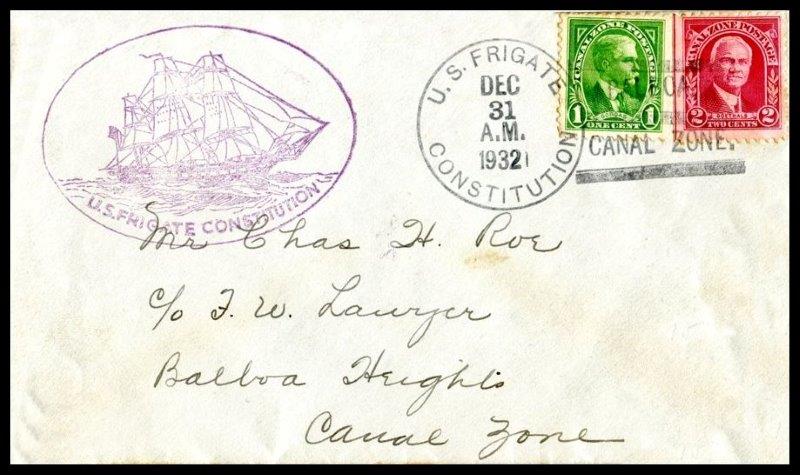 U.S. FRIGATE CONSTITUTION
U. S. FRIGATE
DEC
31
A.M.
1932
CONSTITUTION
CANAL ZONE POSTAGE
1 1
ONE CENT
CANAL ZONE POSTAGE
GOETHALS
2 2
TWO CENTS
CANAL ZONE.
Mr Chas H. Roe
c/o F. W. Lawyer
Balboa Heights
Canal Zone